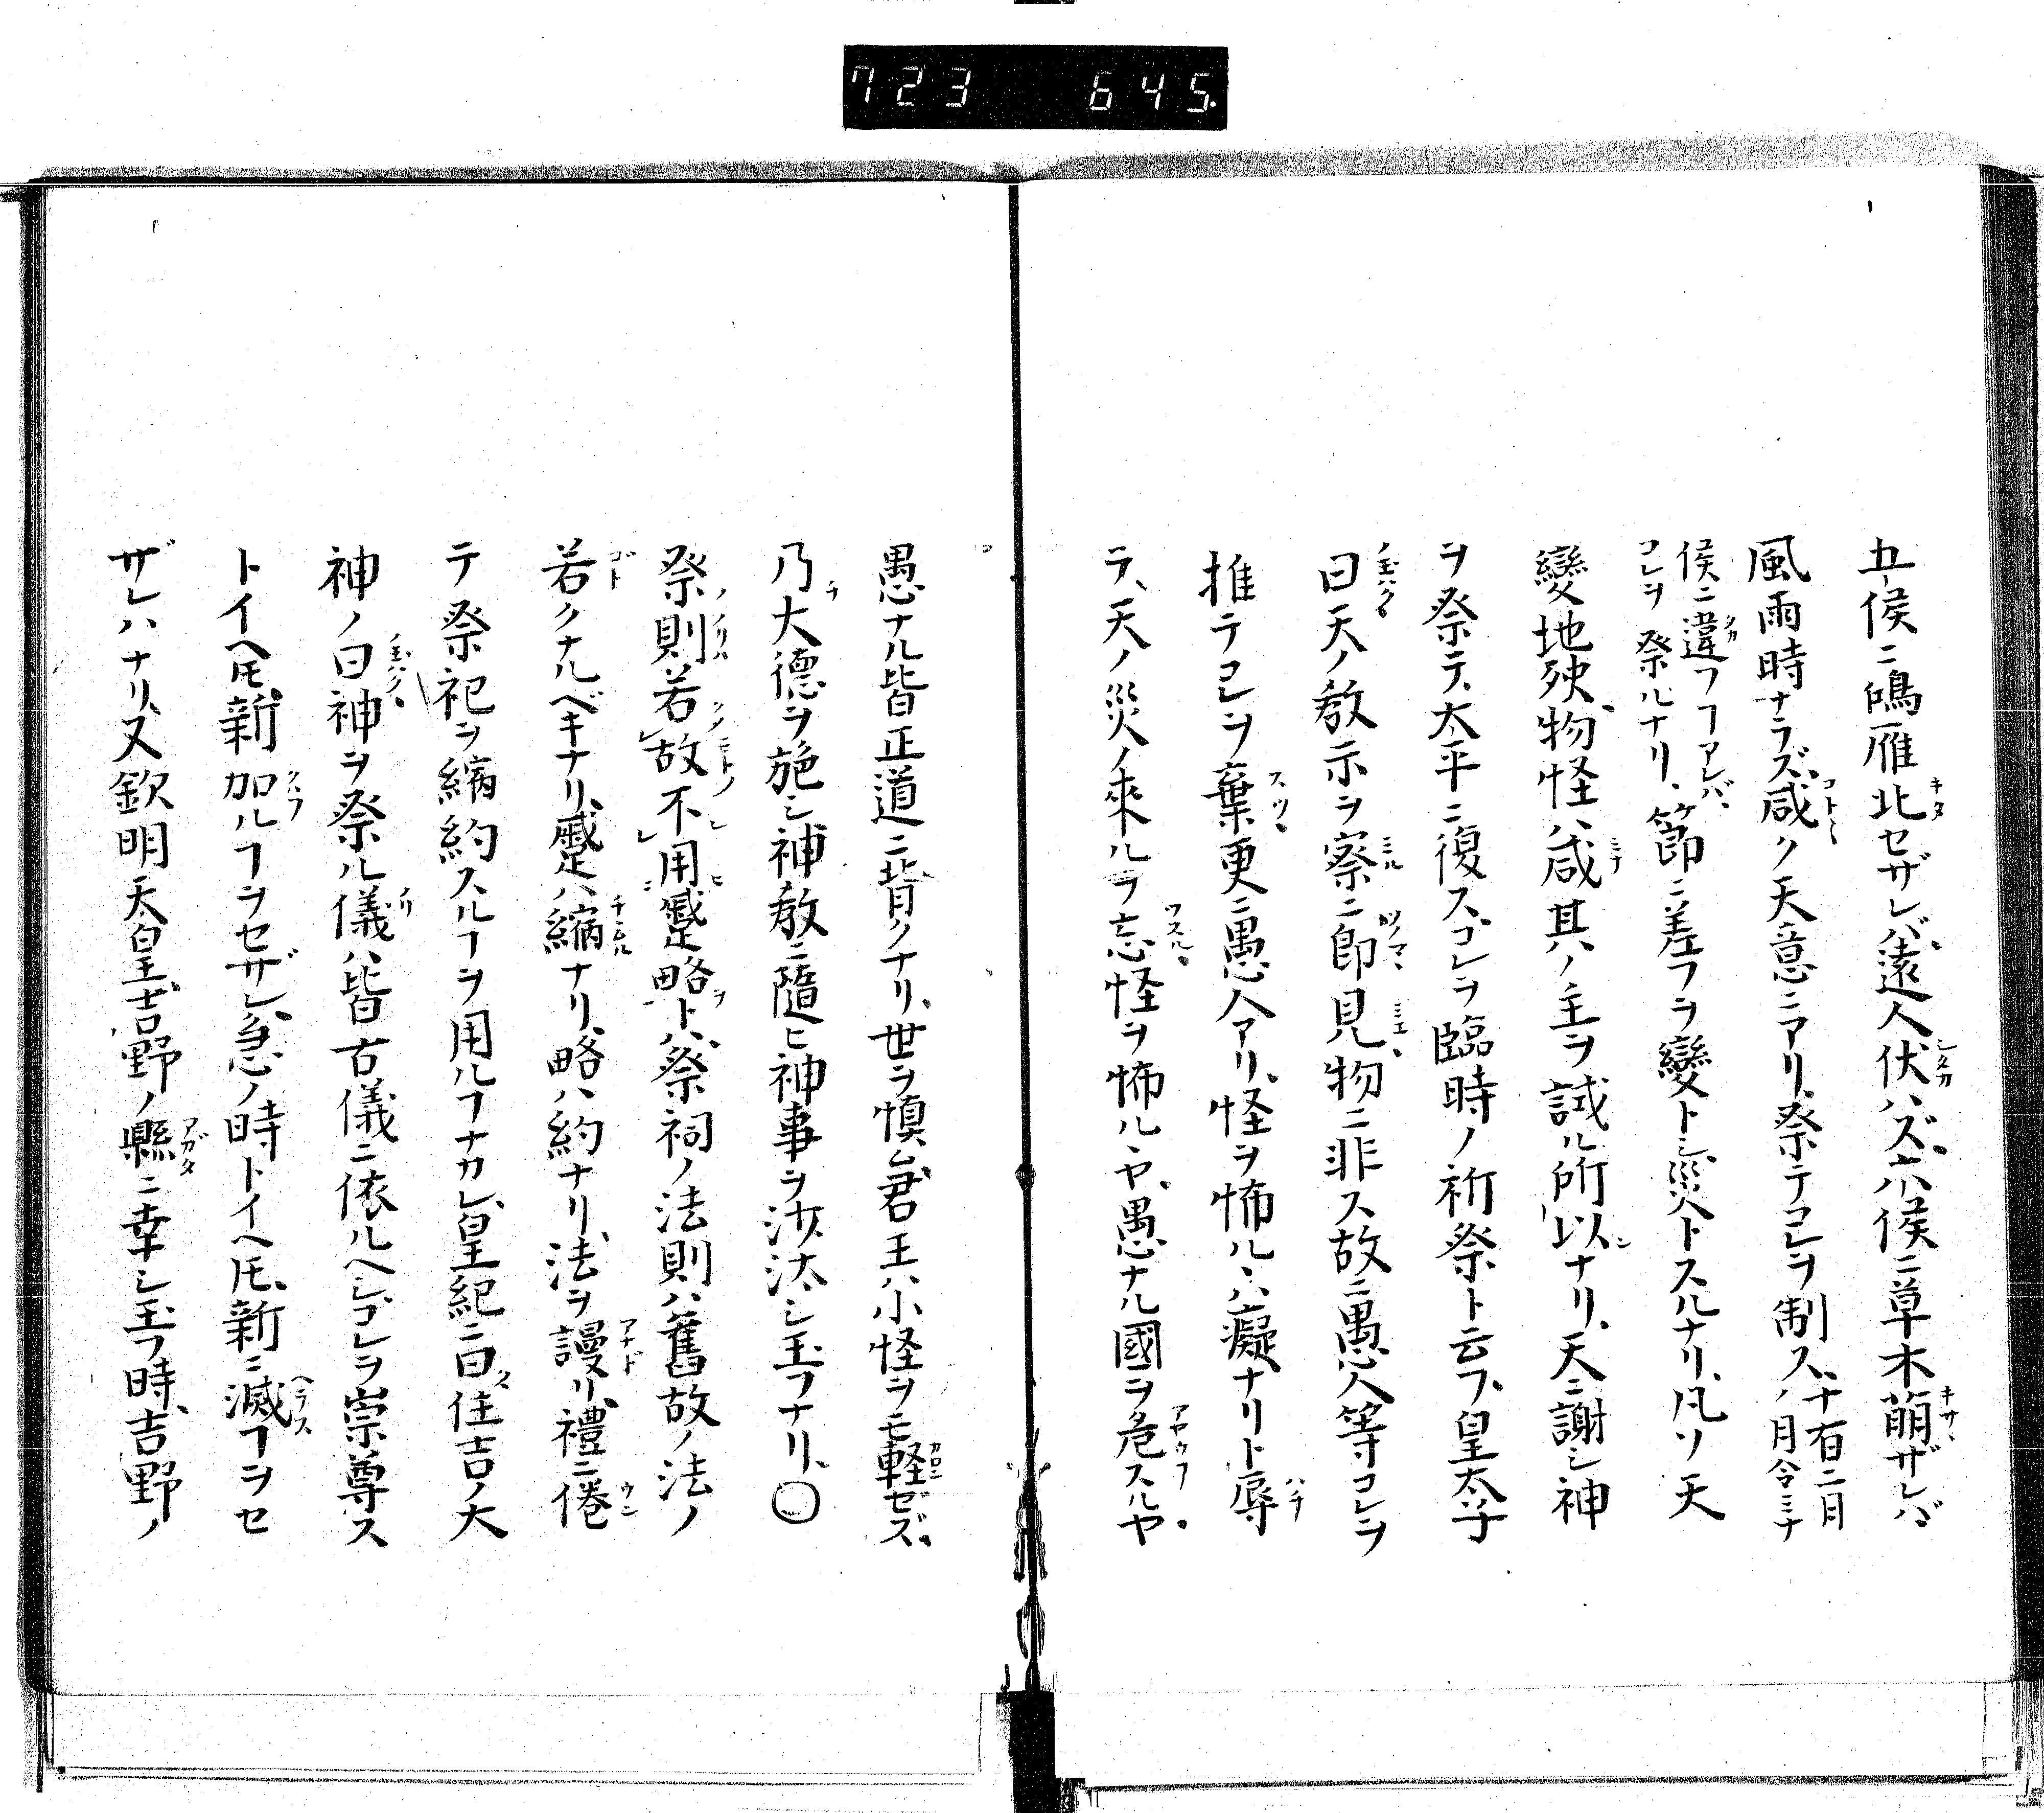 723 645.
五侯ニ鴻雁北セザレバ遠人伏ハズ、六侯ニ草木萠ザレバ
風雨時ナラズ、咸ク天意ニアリ、祭テコレヲ制ス、十有二月ノ月令ミナ
侯ニ違フヿアレバ、コレヲ祭ルナリ、節ニ差フヲ變トシ災トスルナリ、凡ソ天
變地殃物怪ハ咸其ノ主ヲ試ル所以ナリ、天ニ謝シ神
ヲ祭テ、太平ニ復ス、コレヲ臨時ノ祈祭ト云フ、皇太子
ノ玉ハク曰天ノ教示ヲ察ニ即見物ニ非ス故ニ愚人等コレヲ
推テコレヲ棄更ニ愚人アリ、怪ヲ怖ルヽハ癡ナリト辱
テ、天ノ災ノ來ルヲ忘怪ヲ怖ルヽヤ、愚ナル國ヲ危スルヤ
愚ナル皆正道ニ背クナリ、世ヲ慎ム君王ハ小怪ヲモ軽ゼズ、
乃大德ヲ施シ神教ニ隨ヒ神事ヲ沙汰シ玉フナリ、〇
祭則若故不用蹙略トハ、祭祠ノ法則ハ舊故ノ法ノ
若クナルベキナリ、蹙ハ縮ナリ、略ハ約ナリ、法ヲ謾リ、禮ニ倦
テ祭祀ヲ縮約スルヿヲ用ルヿナカレ、皇紀ニ曰住吉ノ大
神ノ曰神ヲ祭ル儀ハ皆古儀ニ依ルヘシ、コレヲ崇尊ス
トイヘ𪜈、新加ルヿヲセザレ、急ノ時トイヘ𪜈、新ニ減ヿヲセ
ザレハナリ、又欽明天皇、吉野ノ縣ニ幸シ玉フ時、吉野ノ